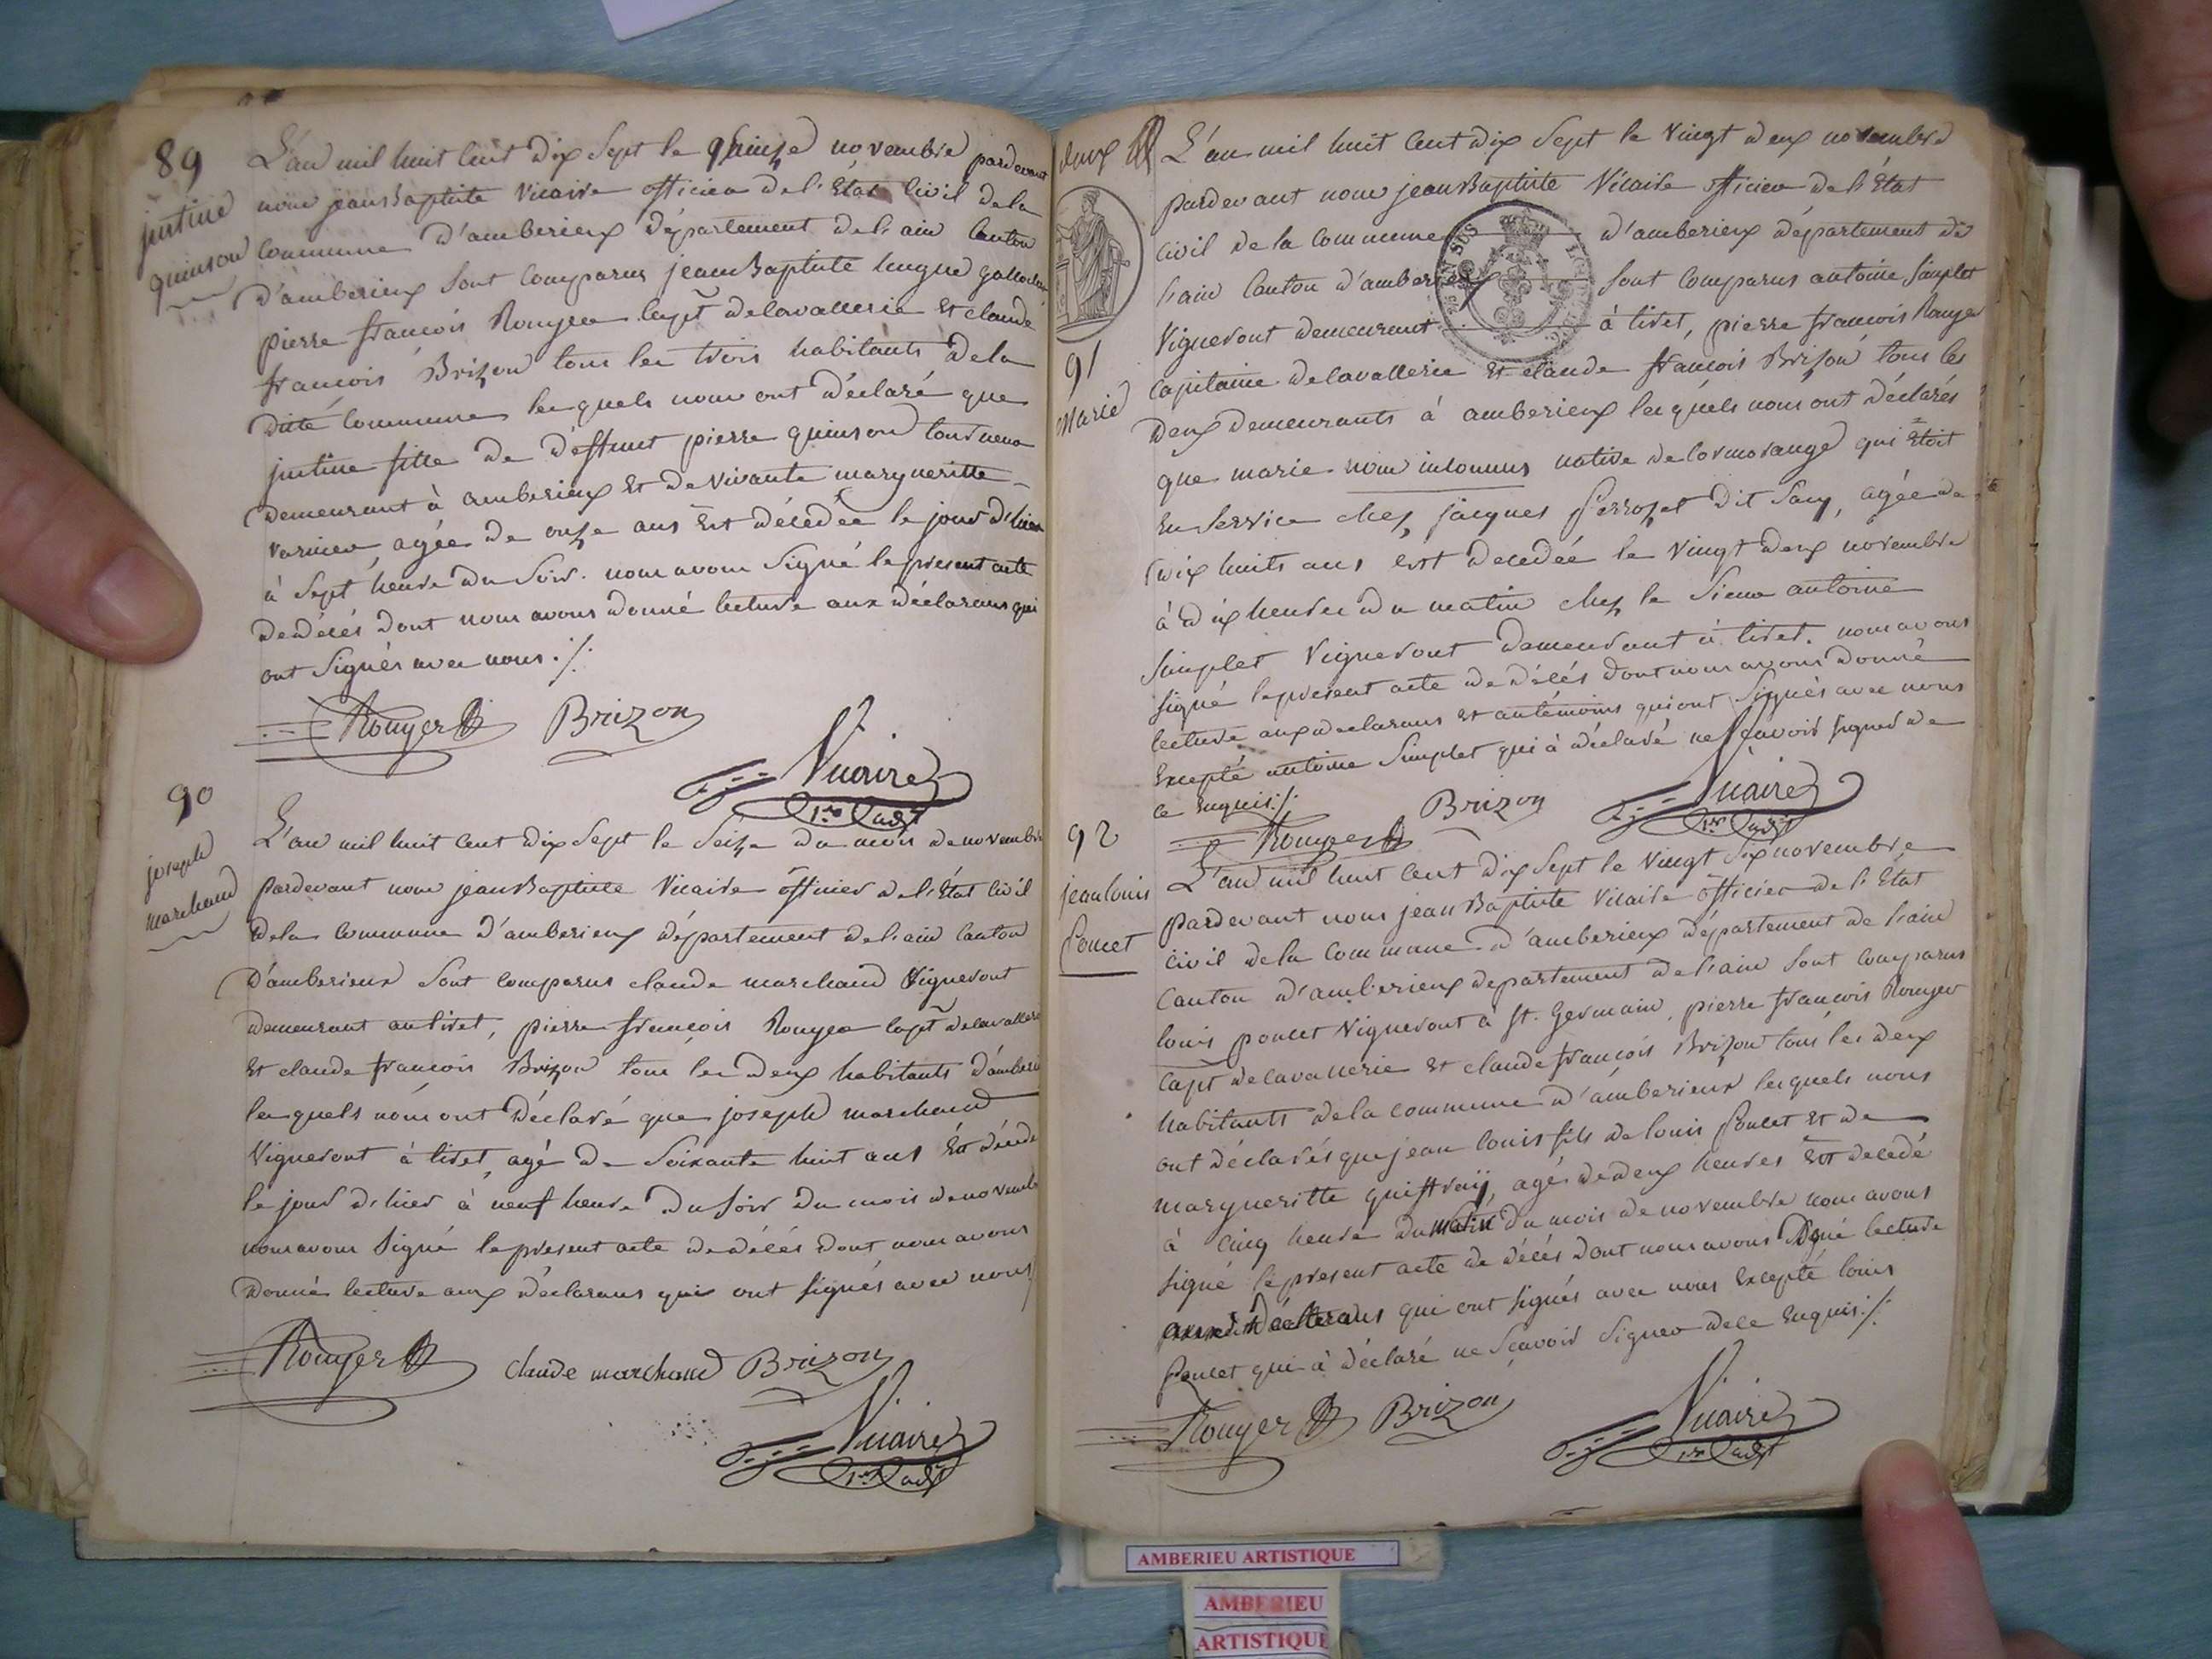 89
justine
quinson
L'an mil huit cent dix sept le quinze novembre pardevant
nous jean Baptiste Vicaire officier de l'Etat Civil de la
Commune d'amberieux département de l'ain Canton
d'amberieux sont comparus jean Baptiste
pierre françois Rouyer capt de cavallerie et claude
françois Brizon tous les trois habitants de la
dite Commune lesquels nous ont déclaré que
justine fille de deffunt pierre quinson
demeurant à amberieux et de vivante margueritte
agée de onze ans est décédée le jour d'hier
à sept heure du soir. nous avons signé le présent acte
de décés dont nous avons donné lecture aux déclarans qui
ont signés avec nous ./.
Rouyer Brizon
Vicaire
1er adjt
90
joseph
marchand
L'an mil huit cent dix sept le seize du mois de novembre
pardevant nous jean Baptiste Vicaire officier de l'Etat Civil
de la Commune d'amberieux département de l'ain Canton
d'amberieux sont comparus claude marchand Vigneront
demeurant au tiret, pierre françois Rouyer capt de cavallerie
et claude françois Brizon tous les deux habitants d'amberi
lesquels nous ont déclaré que joseph marchand
Vigneront à tiret, agé de soixante huit ans est décédé
le jour d'hier à neuf heure du soir du mois de novemb
nous avons signé le présent acte de décés dont nous avons
donné lecture aux déclarans qui ont signés avec nous
Rouyer claude marchand Brizon
Vicaire
1er adjt
deux
91
Marie
L'an mil huit cent dix sept le vingt deux novembre
pardevant nous jean Baptiste Vicaire officier de l'Etat
civil de la Commune d'amberieux département de
l'ain Canton d'amberieux sont comparus antoine simplet
Vigneront demeurant à tiret, pierre françois Rouyer
capitaine de cavallerie et claude françois Brizon tous les
deux demeurants à amberieux lesquels nous ont déclarés
que marie nom inconnus native de Cormorange qui étoit
en service chez jacques perrozet dit , agée de
dix huits ans est décédée le vingt deux novembre
à dix heures du matin chez le sieur antoine
simplet Vigneront demeurant à tiret. nous avons
signé le présent acte de décés dont nous avons donné
lecture aux declarans et au témoins qui ont signés avec nous
Excepté antoine simplet qui à déclaré ne sçavoir signer de
ce Enquis ./.
Rouyer Brizon Vicaire
1er adjt
92
jean louis
Poncet
L'an mil huit cent dix sept le vingt six novembre
pardevant nous jean Baptiste Vicaire officier de l'Etat
civil de la Commune d'amberieux département de l'ain
Canton d'amberieux departement de l'ain sont comparus
louis poncet Vigneront à st. Germain, pierre françois Rouyer
capt de cavallerie et claude françois Brizon tous les deux
habitants de la commune d'amberieux lesquels nous
ont déclarés que jean louis fils de louis Poncet et de
margueritte , agé de deux heures est decedé
à cinq heure du matin du mois de novembre nous avons
signé le présent acte de décés dont nous avons doné lecture
aux déclarans qui ont signés avec nous Excepté louis
Poncet qui à déclaré ne sçavoir signer de ce Enquis ./.
Rouyer Brizon Vicaire
1er adjt
AMBERIEU ARTISTIQUE
AMBERIEU
ARTISTIQUE